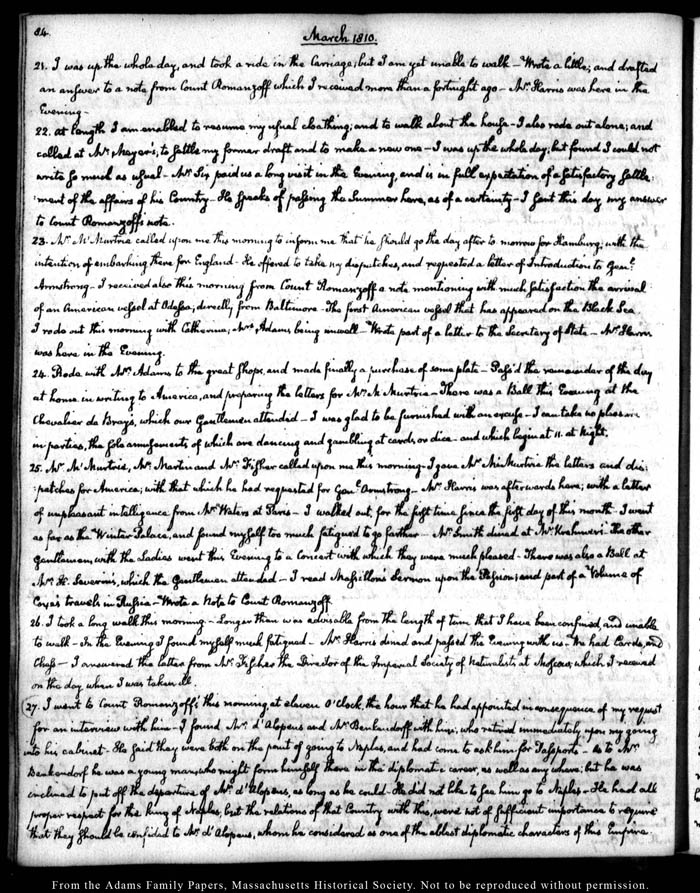 84.
March 1810.
21. I was up the whole day, and took a ride in the Carriage; but I am yet unable to walk — Wrote a little; and drafted
an answer to a note from Count Romanzoff which I received more than a fortnight ago — Mr. Harris was here in the
Evening.
22. At length I am enabled to resume my usual cloathing; and to walk about the house — I also rode out alone; and
called at Mr. Meyer's; to settle my former draft and to make a new one — I was up the whole day; but found I could not
write so much as usual — Mr. Six paid us a long visit in the Evening, and is in full expectation of a satisfactory settle-
ment of the affairs of his Country — He speaks of passing the Summer here, as of a certainty — I sent this day my answer
to Count Romanzoff's note.
23. Mr. McMurtrie called upon me this morning to inform me that he should go the day after to morrow for Hamburg; with the
intention of embarking there for England — He offered to take my dispatches, and requested a letter of Introduction to Genl.
Armstrong — I received also this morning from Count Romanzoff a note mentioning with much satisfaction the arrival
of an American vessel at Odessa; directly from Baltimore — The first American vessel that has appeared on the Black Sea
I rode out this morning with Catherine; Mrs. Adams being unwell — Wrote part of a letter to the Secretary of State — Mr. Harris
was here in the Evening.
24. Rode with Mrs. Adams to the great shops, and made finally a purchase of some plate — Pass'd the remainder of the day
at home in writing to America, and preparing the letters for Mr. McMurtrie — There was a Ball this Evening at the
Chevalier de Bray's, which our Gentlemen attended — I was glad to be furnished with an excuse — I can take no pleasure
in parties, the sole amusements of which are dancing and gambling at cards, or dice — and which begin at 11. at Night.
25. Mr. McMurtrie, Mr. Martin and Mr. Fisher called upon me this morning — I gave Mr. McMurtrie the letters and dis-
patches for America; with that which he had requested for Genl. Armstrong — Mr. Harris was afterwards here; with a letter
of unpleasant intelligence from Mr. Waters at Paris — I walked out, for the first time since the first day of this month — I went
as far as the Winter Palace, and found myself too much fatigued to go farther — Mr. Smith dined at Mr. Krehmer's. The other
gentlemen, with the Ladies went this Evening to a Concert with which they were much pleased — There was also a Ball at
Mr. St. Severin's, which the Gentlemen attended — I read Massillon's Sermon upon the Passion; and part of a Volume of
Coxe's travels in Russia — Wrote a Note to Count Romanzoff
26. I took a long walk this morning — Longer than was advisable from the length of term that I have been confined, and unable
to walk — In the Evening I found myself much fatigued — Mr. Harris dined and passed the Evening with us. We had Cards, and
Chess — I answered the letter from Mr. Fischer the Director of the Imperial Society of Naturalists at Moscow, which I received
on the day when I was taken ill.
27. I went to Count Romanzoff's this morning, at eleven O'Clock, the hour that he had appointed in consequence of my request
for an interview with him — I found Mr. d'Alopeus and Mr. Benkendorff with him; who retired immediately upon my going
into his cabinet — He said they were both on the point of going to Naples, and had come to ask him for Passports — As to Mr.
Benkendorf he was a young man, who might form himself there in the diplomatic career, as well as any where; but he was
inclined to put off the departure of Mr. d'Alopeus, as long as he could — He did not like to see him go to Naples — He had all
proper respect for the king of Naples, but the relations of that Country with this, were not of sufficient importance to require
that they should be confided to Mr. d'Alopeus, whom he considered as one of the ablest diplomatic characters of this Empire.
From the Adams Family Papers, Massachusetts Historical Society. Not to be reproduced without permission.